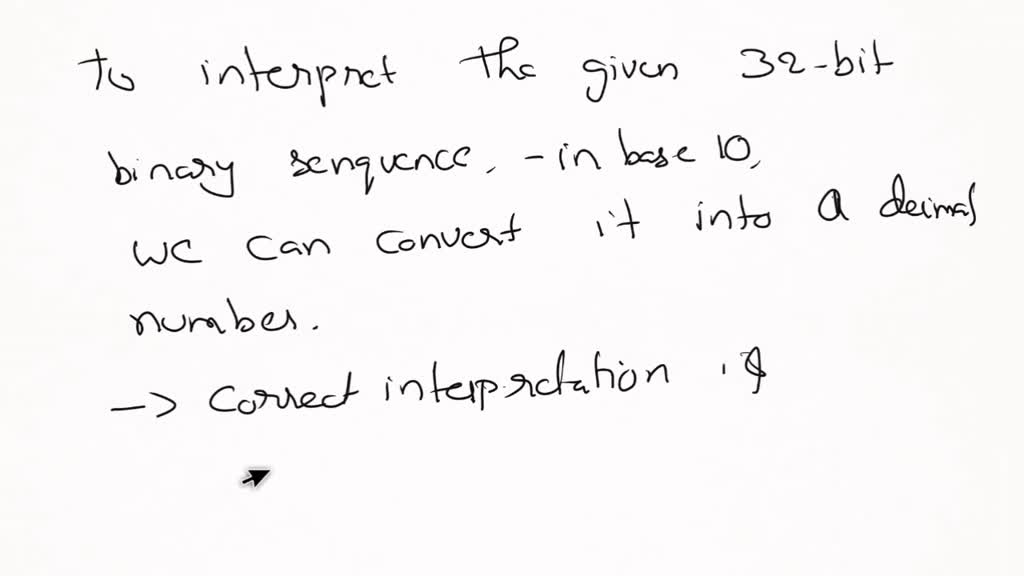 To interpret the given 32-bit
binary senquence, - in base 10,
we can convert it into a decimal
number.
-> correct interpretation is